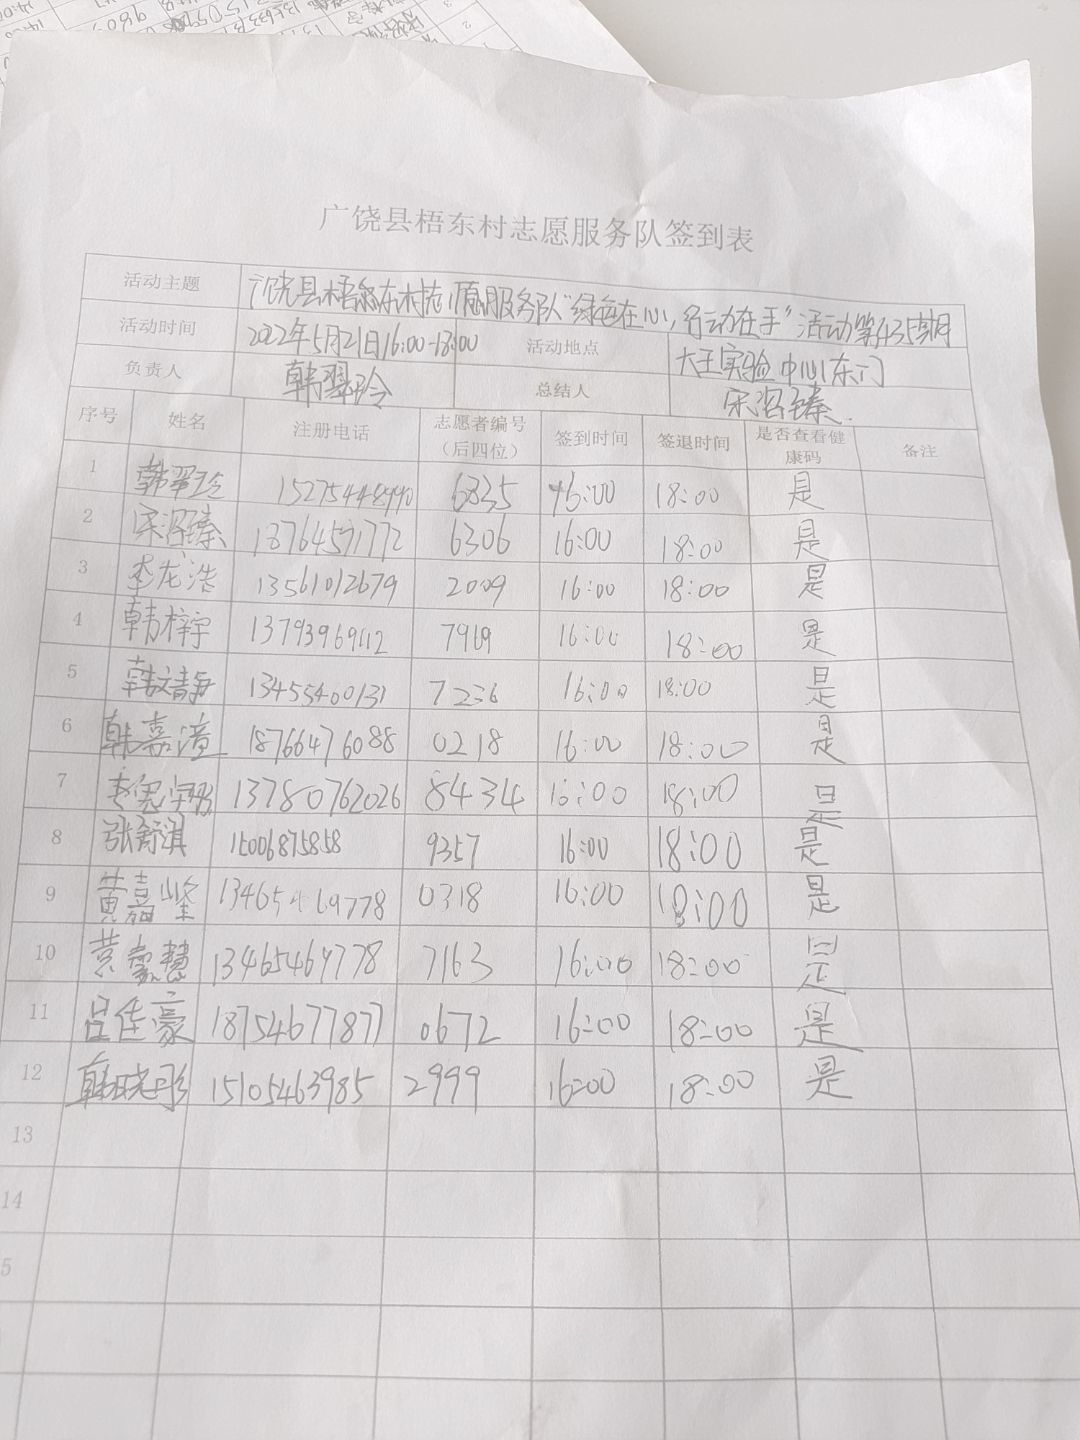 广饶县梧东村志愿服务队签到表
活动主题 广饶县梧东村志愿服务队“绿色在心,行动在手”活动第435期
活动时间 2022年5月21日16:00-18:00 活动地点 大王实验中心东门
负责人 韩翠玲 总结人
序号 姓名 注册电话 志愿者编号(后四位) 签到时间 签退时间 是否查看健康码 备注
1 韩翠玲 15275448990 6835 16:00 18:00 是
2 18764591772 6306 16:00 18:00 是
3 李龙浩 13561012679 2009 16:00 18:00 是
4 韩梓宇 7969 16:00 18:00 是
5 韩文静 13455400131 7236 16:00 18:00 是
6 韩嘉 18766476088 0218 16:00 18:00 是
7 13780762026 8434 16:00 18:00 是
8 张舒淇 15006875858 9357 16:00 18:00 是
9 黄嘉峰 0318 16:00 18:00 是
10 黄 7163 16:00 18:00 是
11 吕佳豪 18754677877 0672 16:00 18:00 是
12 韩晓彤 15105463985 2999 16:00 18:00 是
13
14
5